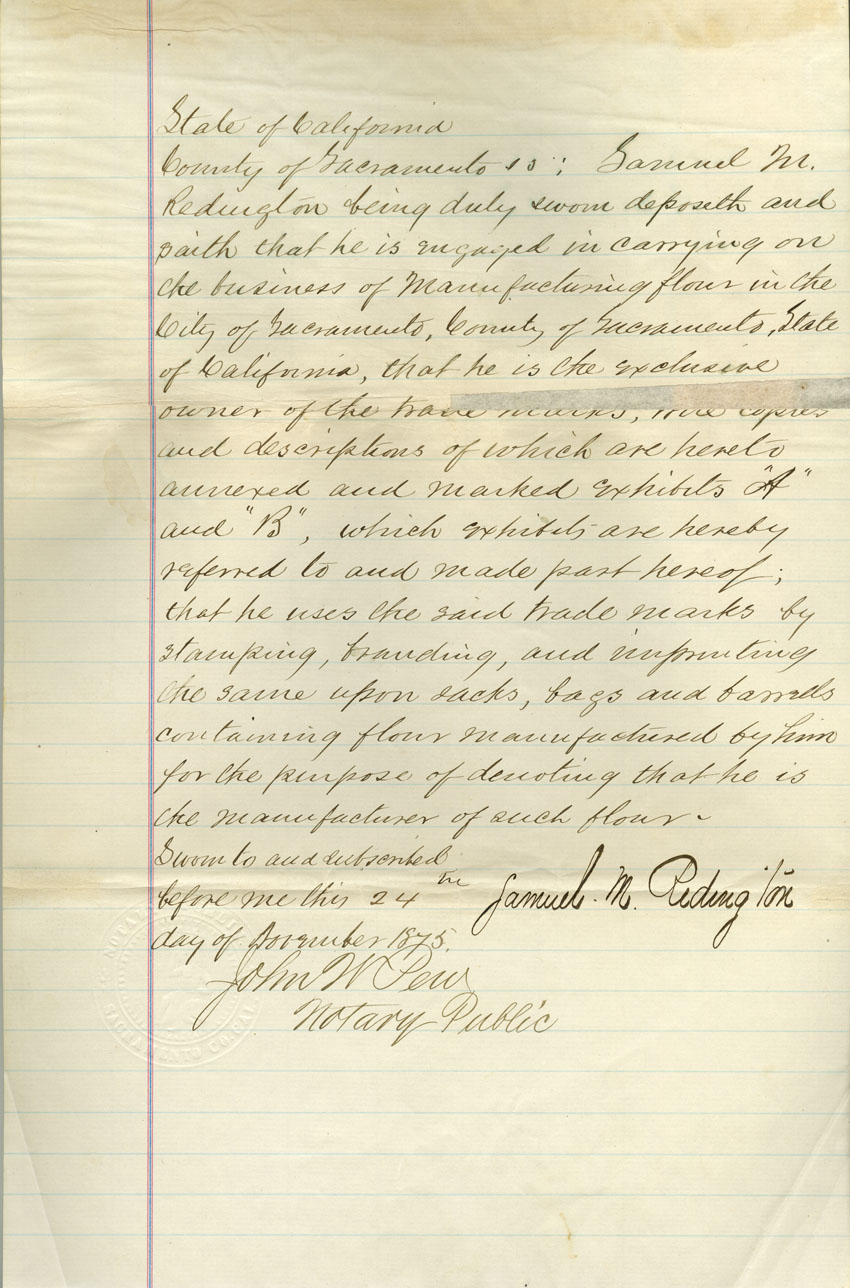 State of California
County of Sacramento ss: Samuel M.
Redington being duly sworn deposeth and
saith that he is engaged in carrying on
the business of Manufacturing flour in the
City of Sacramento, County of Sacramento, State
of California, that he is the exclusive
owner of the trade marks, true copies
and descriptions of which are hereto
annexed and marked exhibits "A"
and "B", which exhibits are hereby
referred to and made part hereof;
that he uses the said trade marks by
stamping, branding, and imprinting
the same upon sacks, bags and barrels
containing flour manufactured by him
for the purpose of denoting that he is
the manufacturer of such flour~
Sworn to and subscribed
before me this 24th Samuel. M. Redington
day of November 1875.
John W Pew
Notary Public
NOTARY
SACRAMENTO CO. CAL